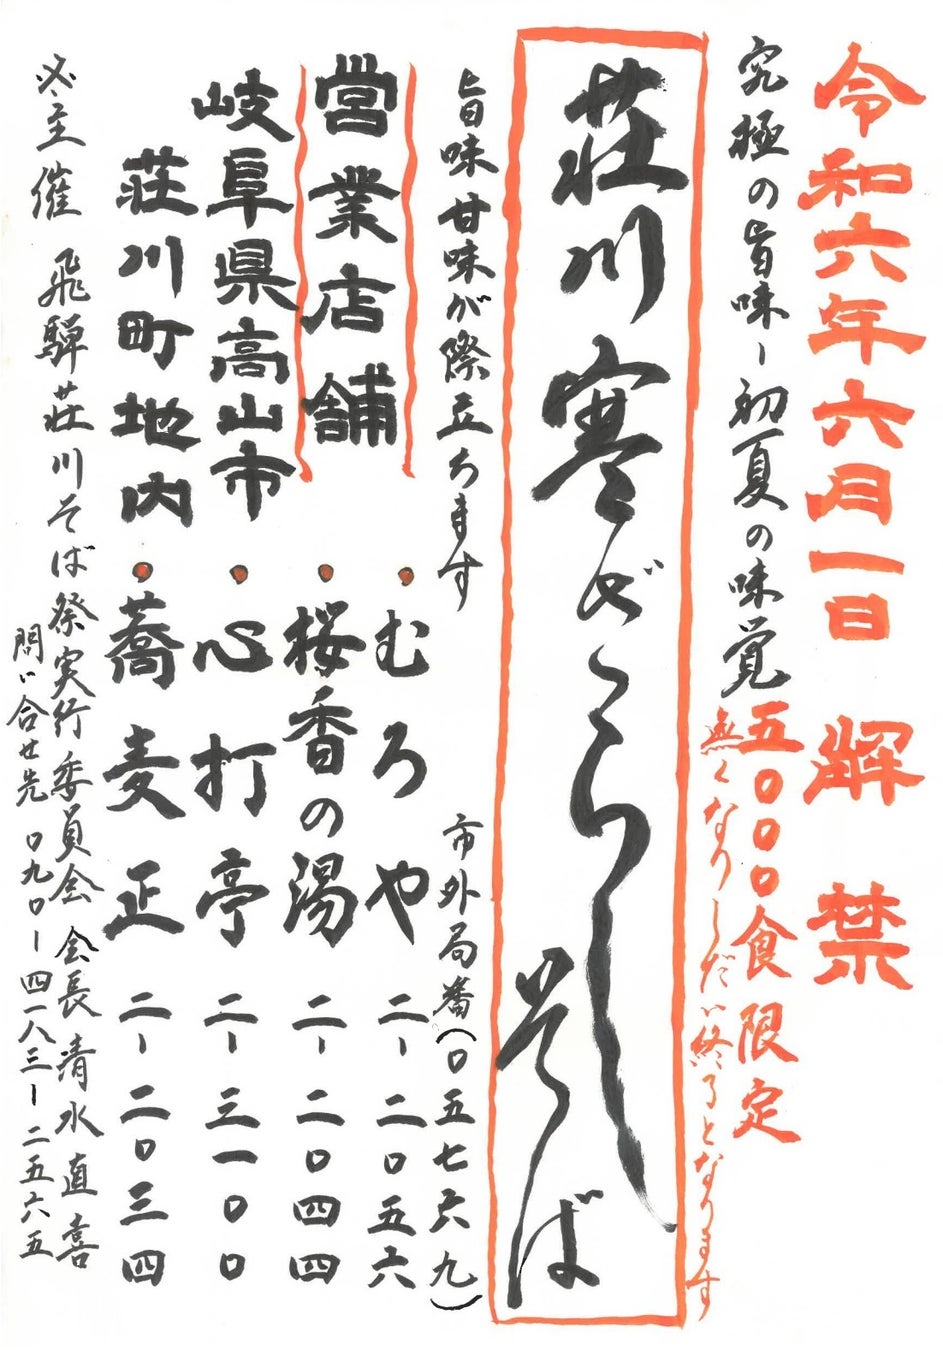 令和六年六月一日 解禁
究極の旨味ー初夏の味覚
五〇〇〇食限定
無くなりしだい終了となります
荘川寒ざらしそば
旨味甘味が際立ちます
市外局番(〇五七六九)
営業店舗
・むろや 二ー二〇五六
・桜香の湯 二ー二〇四四
岐阜県高山市
・心打亭 二ー三一〇〇
荘川町地内
・蕎麦正 二ー二〇三四
主催 飛騨荘川そば祭実行委員会 会長 清水直喜
問い合せ先 〇九〇ー四一八三ー二五六五